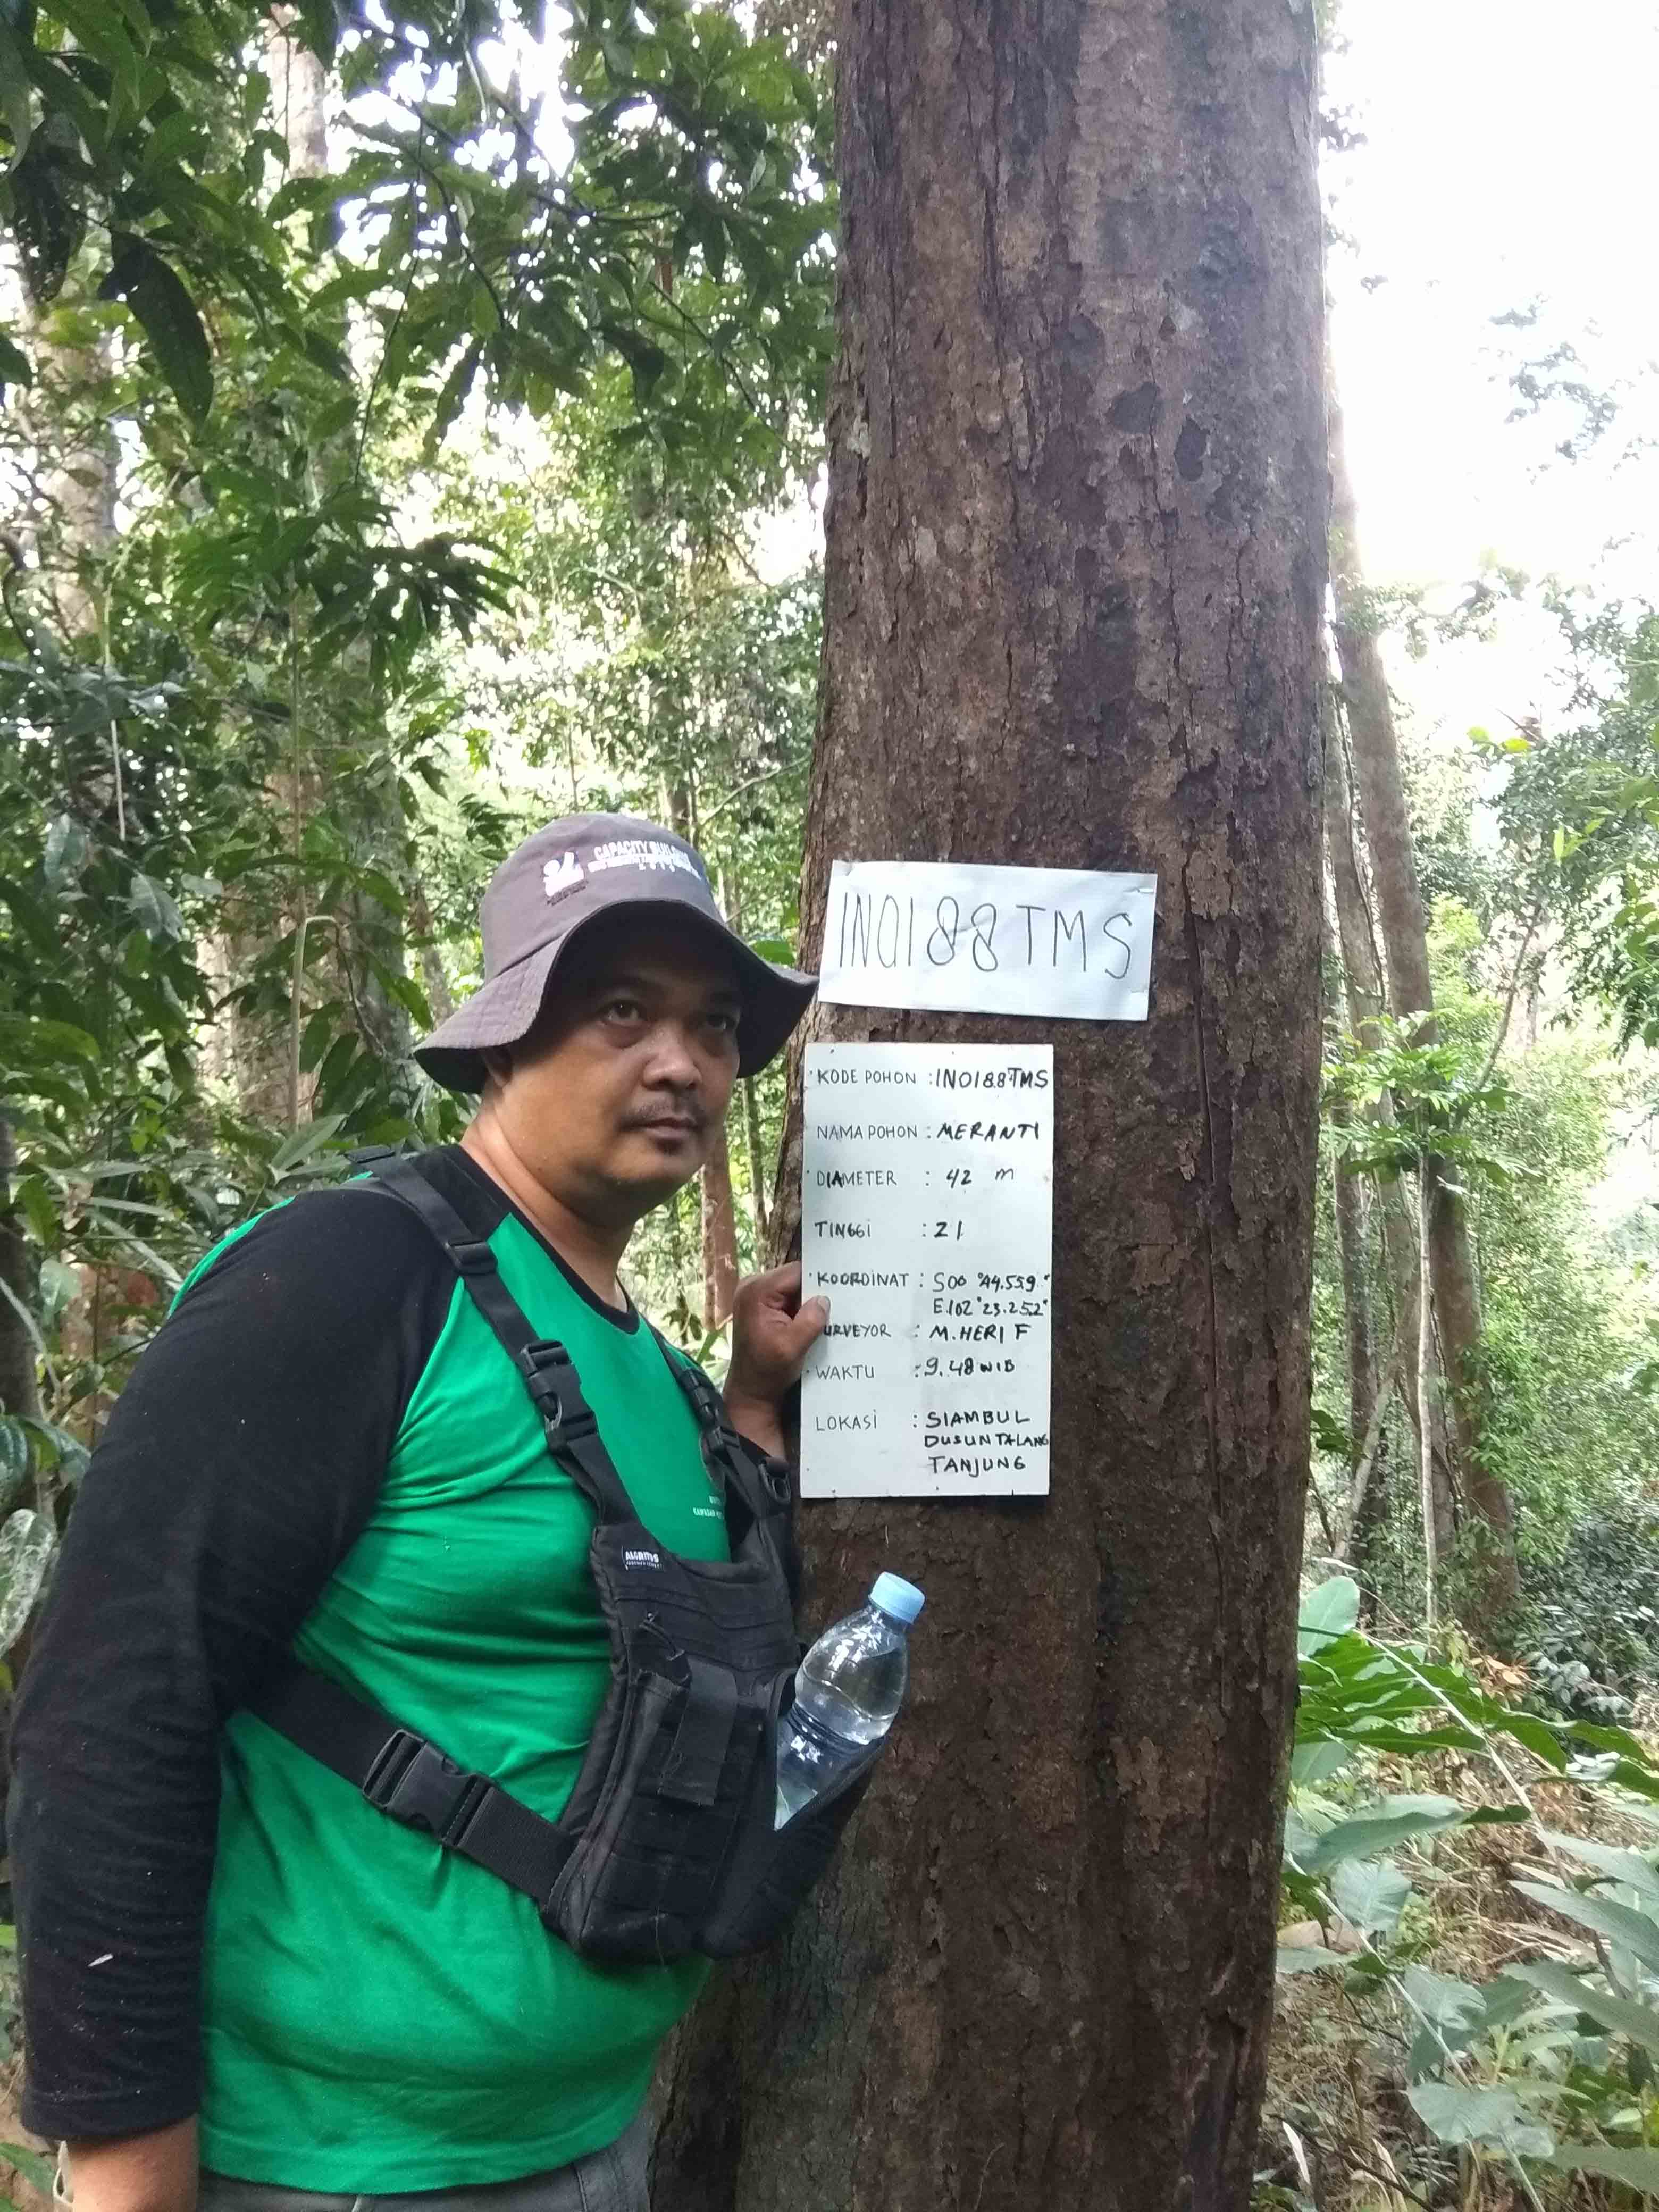 CAPACITY
IN0188TMS
KODE POHON : IN0188TMS
NAMA POHON : MERANTI
DIAMETER : 42 m
TINGGI : 21
KOORDINAT : S00°44.559"
E.102°23.252"
URVEYOR : M.HERI F
WAKTU : 9.48 WIB
LOKASI : SIAMBUL
DUSUN TALANG
TANJUNG